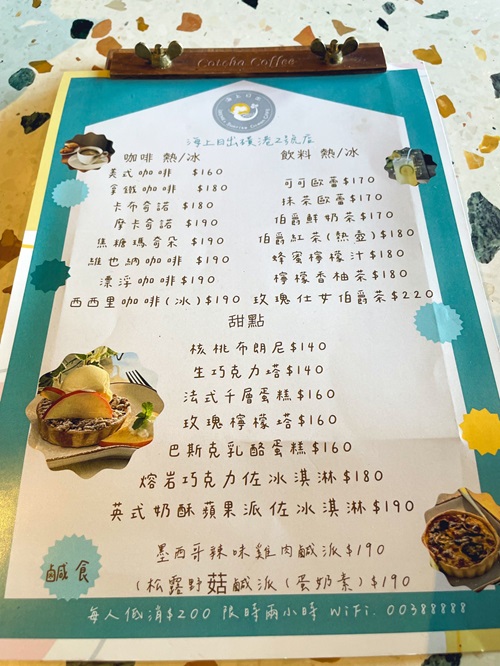 Catcha Coffee
海上日出
海上日出橫港2號店
咖啡 熱/冰
美式咖啡 $160
拿鐵咖啡 $180
卡布奇諾 $180
摩卡奇諾 $190
焦糖瑪奇朵 $190
維也納咖啡 $190
漂浮咖啡 $190
西西里咖啡(冰) $190
飲料 熱/冰
可可歐蕾 $170
抹茶歐蕾 $170
伯爵鮮奶茶 $170
伯爵紅茶(熱壺) $180
蜂蜜檸檬汁 $180
檸檬香柚茶 $180
玫瑰仕女伯爵茶 $220
甜點
核桃布朗尼 $140
生巧克力塔 $140
法式千層蛋糕 $160
玫瑰檸檬塔 $160
巴斯克乳酪蛋糕 $160
熔岩巧克力佐冰淇淋 $180
英式奶酥蘋果派佐冰淇淋 $190
鹹食
墨西哥辣味雞肉鹹派 $190
(松露野菇鹹派(蛋奶素) $190
每人低消$200 限時兩小時 WiFi. 00388888